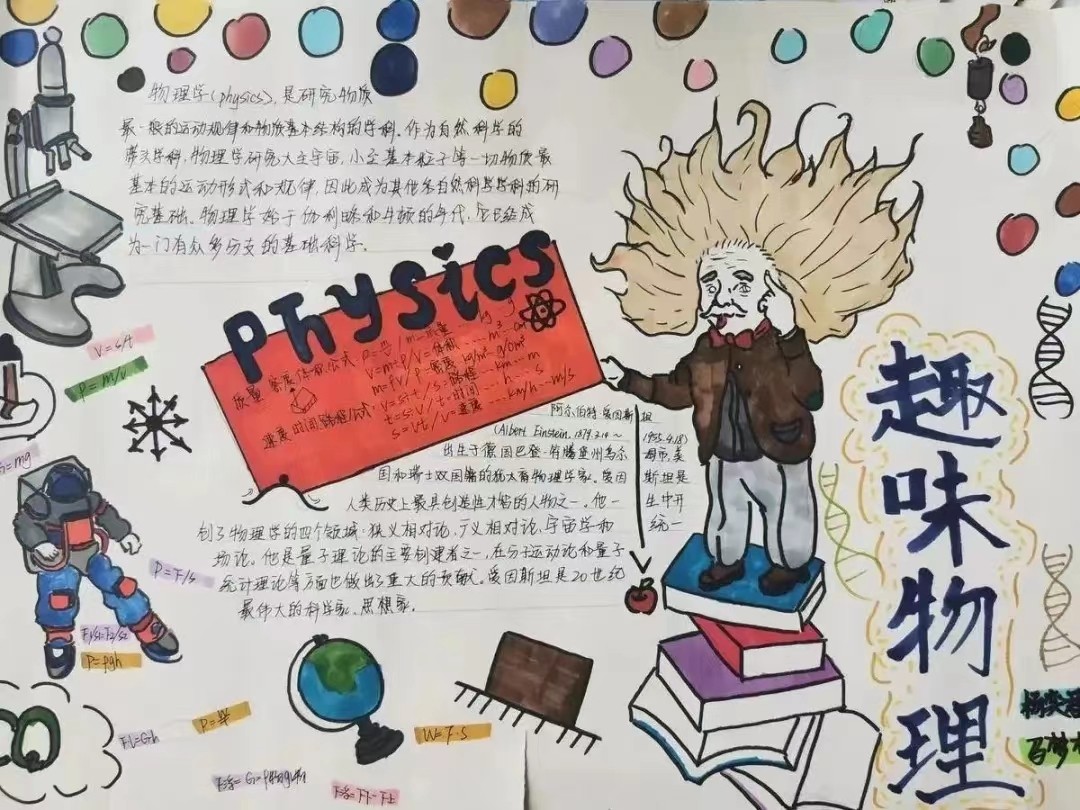 物理学(physics),是研究物质
最一般的运动规律和物质基本结构的学科。作为自然科学的
带头学科,物理学研究大至宇宙,小至基本粒子等一切物质最
基本的运动形式和规律,因此成为其他各自然科学学科的研
究基础。物理学始于伽利略和牛顿的年代,它已经成
为一门有众多分支的基础科学。
Physics
质量 密度 体积公式
速度 时间 路程公式:
V=S/t
ρ=m/v
G=mg
P=F/s
F1/S1=F2/S2
P=ρgh
阿尔伯特·爱因斯坦
(Albert Einstein, 1879.3.14~1955.4.18)
出生于德国巴登·符腾堡州乌尔姆市,美
国和瑞士双国籍的犹太裔物理学家。爱因斯坦是
人类历史上最具创造性才智的人物之一。他一生中开
创了物理学的四个领域:狭义相对论、广义相对论、宇宙学和统一
场论。他是量子理论的主要创建者之一,在分子运动论和量子
统计理论等方面也做出重大的贡献。爱因斯坦是20世纪
最伟大的科学家、思想家。
W=F·S
趣味物理